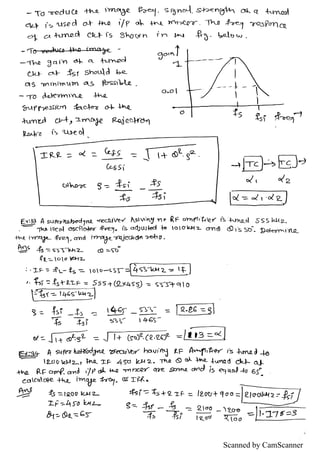 - To reduce the image freq. signal strength ok a tuned
ckt is used at the i/p ok the mixer. The freq response
of a tuned ckt is shown in the fig. below.
- To reduce the image -
- The gain ok a tuned
ckt at fsi should be
as minimum as possible.
- To determine the
suppression factor ok the
tuned ckt, Image Rejection
Ratio is used.
gain
1
0.01
0
fs
fsi
freq
IRR = α = Gfs / Gfsi = √1 + Q².S²
where S = fsi/fs - fs/fsi
TC
TC
α1
α2
α = α1.α2
A superhetrodyne receiver having no RF amplifier is tuned 555 kHz.
The local oscillator freq. is adjusted to 1010 kHz and Q is 50. Determine
the image freq. and image rejection ratio.
Ans fs = 555 kHz Q = 50
fl = 1010 kHz
∴ IF = fl - fs = 1010 - 555 = 455 kHz = IF
∴ fsi = fs + 2IF = 555 + (2x455) = 555 + 910
fsi = 1465 kHz
S = fsi/fs - fs/fsi = 1465/555 - 555/1465 = 2.26 = S
α = √1 + Q²S² = √1 + (50)² (2.26)² = 113 = α
A superhetrodyne receiver having RF Amplifier is tuned to
1200 kHz, the IF 450 kHz. The Q ok the tuned ckt at
the RF amp. and i/p ok the mixer are same and is equal to 65.
calculate the image freq. & IRR.
Ans fs = 1200 kHz fsi = fs + 2 IF = 1200 + 900 = 2100 kHz = fsi
IF = 450 kHz
Q1 = Q2 = 65 S = fsi/fs - fs/fsi = 2100/1200 - 1200/2100 = 1.178 = S
Scanned by CamScanner